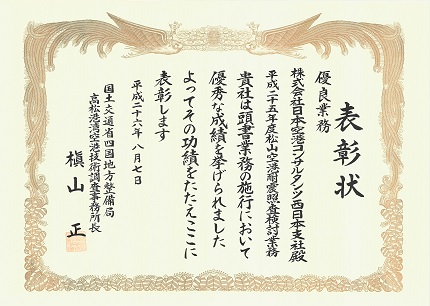 表彰状
優良業務
株式会社日本空港コンサルタンツ西日本支社殿
平成二十五年度松山空港耐震照査検討業務
貴社は頭書業務の施行において
優秀な成績を挙げられました
よってその功績をたたえここに
表彰します
平成二十六年八月七日
国土交通省四国地方整備局
高松港湾空港技術調査事務所長
槇山正